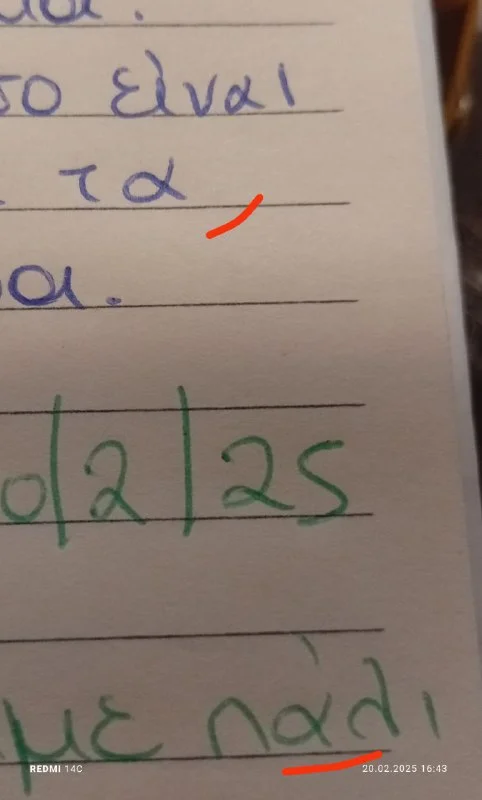 είναι
τα
2/25
με πάλι
REDMI 14C
20.02.2025 16:43